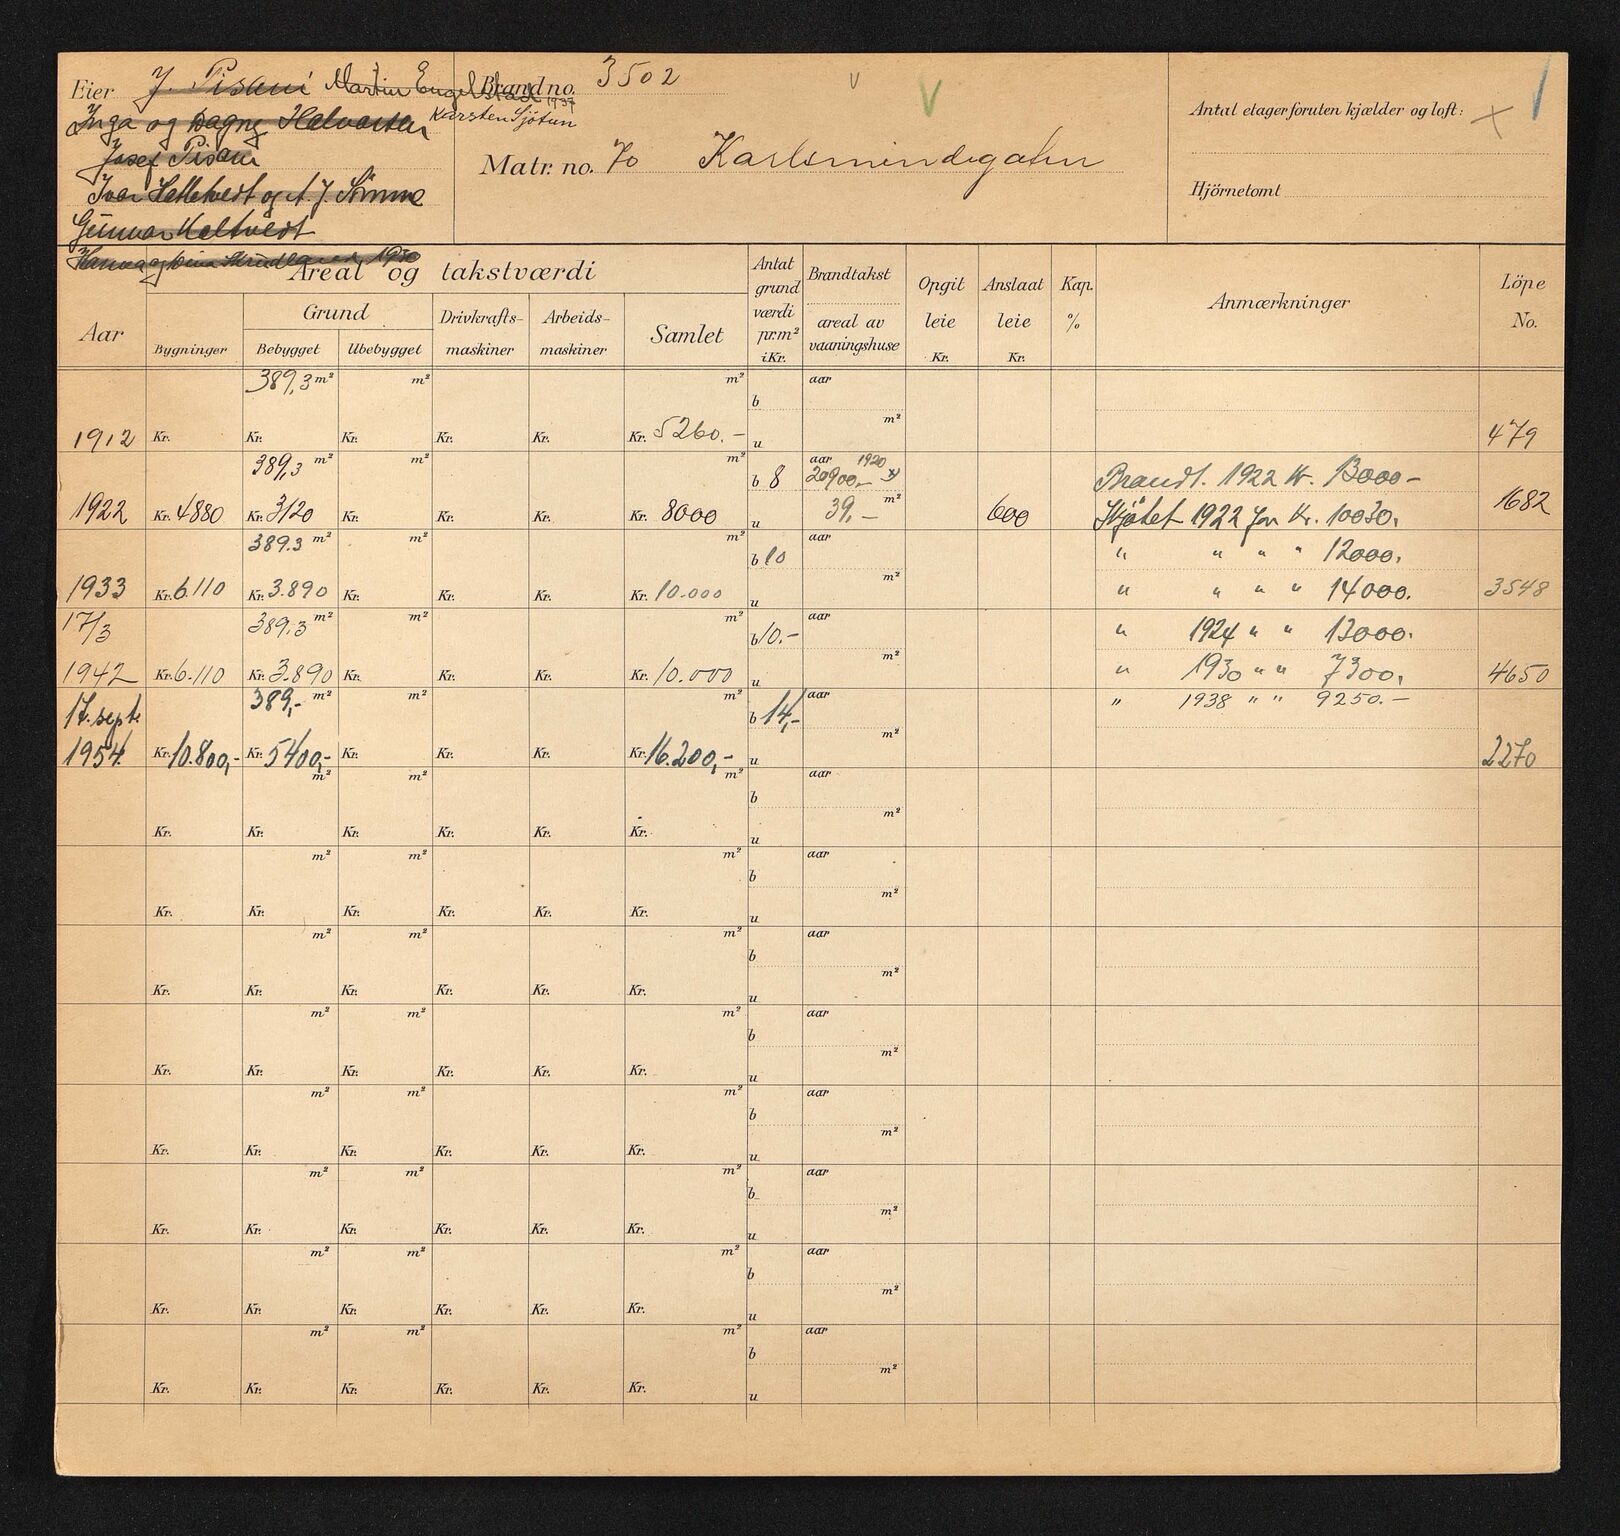 Eier J. Pisani Martin Engelstad Brand no. 3502
Inga og Dagny Halvorsen Karsten Sjøtun 1937
Josef Pisani
Matr. no. 70 Karlsmindegaten
Ivar og A. J. Sømme
Gunnar Meltvedt
1930
Antal etager foruten kjælder og loft: x
Hjörnetomt
Areal og takstværdi
Aar
Bygninger
Grund
Bebygget Ubebygget
Drivkrafts-maskiner
Arbeids-maskiner
Samlet
Antat grund værdi pr. m² i Kr.
Brandtakst
areal av vaaningshuse
Opgit leie Kr.
Anslaat leie Kr.
Kap. %
Anmærkninger
Löpe No.
389,3 m² m² m² b aar
1912 Kr. Kr. Kr. Kr. Kr. Kr. 5260.- u m² 479
389,3 m² m² m² b 8 aar 1920 20900,- x) Brandt. 1922 Kr. 13000-
1922 Kr. 4880 Kr. 3120 Kr. Kr. Kr. Kr. 8000 u 39,- m² 600 Skjøtet 1922 for Kr. 10030, 1682
389.3 m² m² m² b 10 aar " " " " 12000,
1933 Kr. 6.110 Kr. 3.890 Kr. Kr. Kr. Kr. 10.000 u m² " " " " 14000. 3548
17/3 389.3 m² m² m² b 10.- aar " 1924 " " 13000.
1942 Kr. 6.110 Kr. 3.890 Kr. Kr. Kr. Kr. 10.000 u m² " 1930 " " 7300, 4650
17. sept. 389,- m² m² m² b 14,- aar " 1938 " " 9250.-
1954. Kr. 10.800,- Kr. 5400,- Kr. Kr. Kr. Kr. 16.200,- u m² 2270
m² m² m² b aar
Kr. Kr. Kr. Kr. Kr. Kr. u m²
m² m² m² b aar
Kr. Kr. Kr. Kr. Kr. Kr. u m²
m² m² m² b aar
Kr. Kr. Kr. Kr. Kr. Kr. u m²
m² m² m² b aar
Kr. Kr. Kr. Kr. Kr. Kr. u m²
m² m² m² b aar
Kr. Kr. Kr. Kr. Kr. Kr. u m²
m² m² m² b aar
Kr. Kr. Kr. Kr. Kr. Kr. u m²
m² m² m² b aar
Kr. Kr. Kr. Kr. Kr. Kr. u m²
m² m² m² b aar
Kr. Kr. Kr. Kr. Kr. Kr. u m²